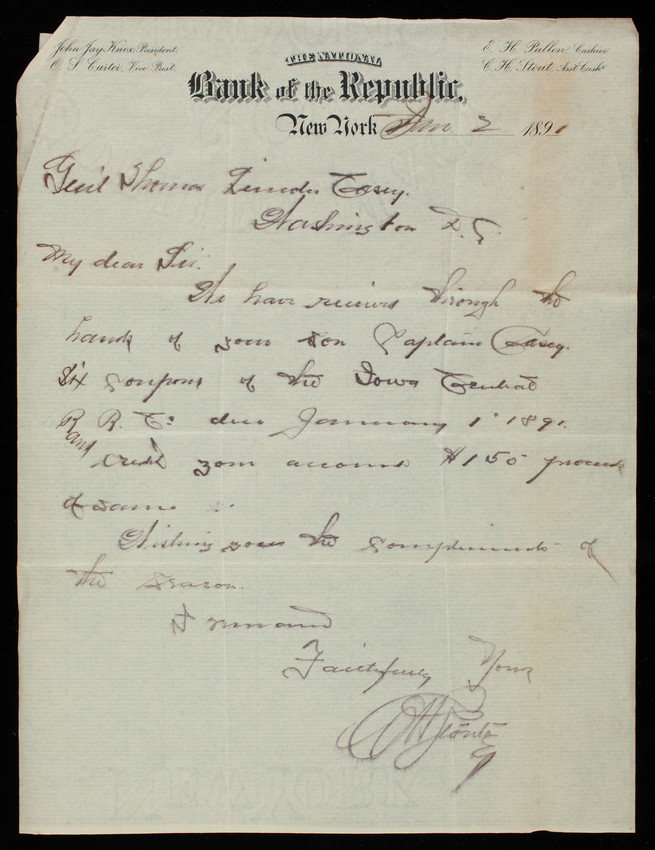 John Jay Knox, President.
O. S. Carter, Vice Prest.
E. H. Pullen, Cashier.
C. H. Stout, Asst. Cashr.
THE NATIONAL
Bank of the Republic,
New York Jan. 2 1891
Gen'l Thomas Lincoln Casey.
Washington D.C.
My dear Sir.
We have received through the
hands of your son Captain Casey.
Six coupons of the Iowa Central
R R. Co due January 1st 1891.
and
credit your account $150 proceeds
of same
Wishing you the compliments of
the season.
I remain
Faithfully Yours
C H Stout
NEW YORK